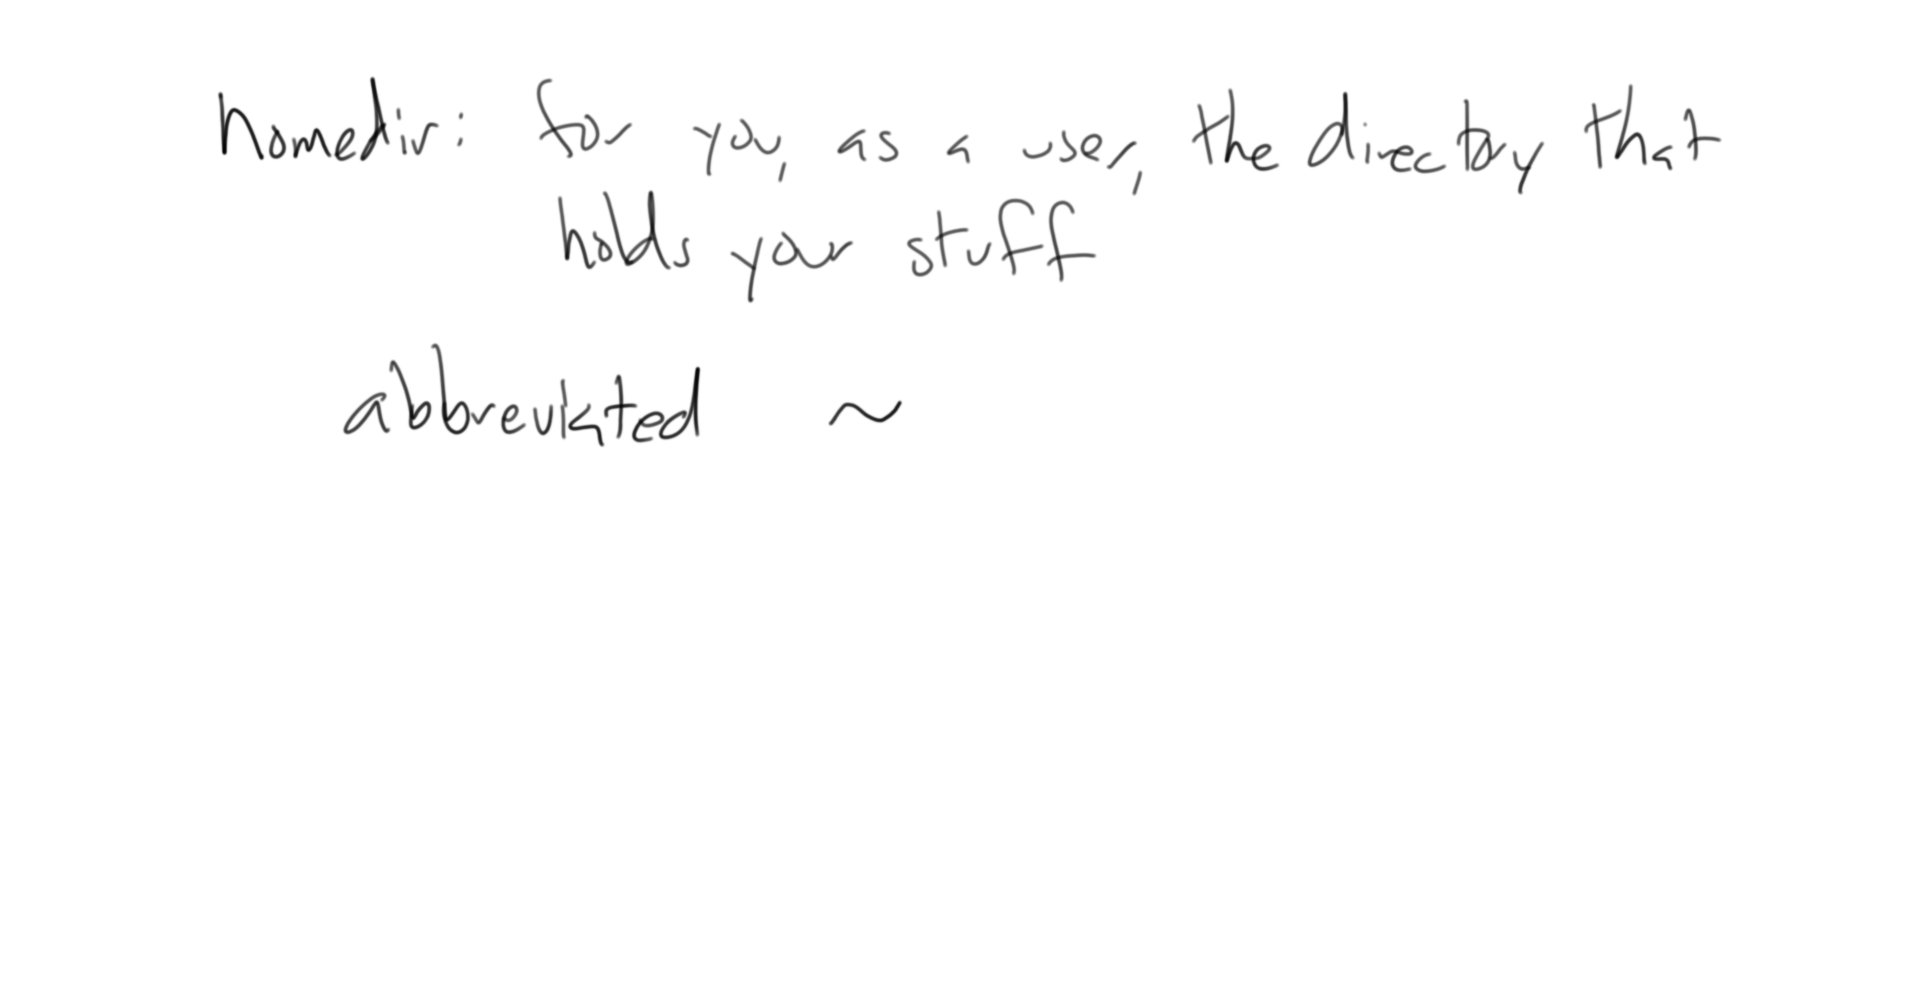 homedir: for you, as a user, the directory that
holds your stuff
abbreviated ~